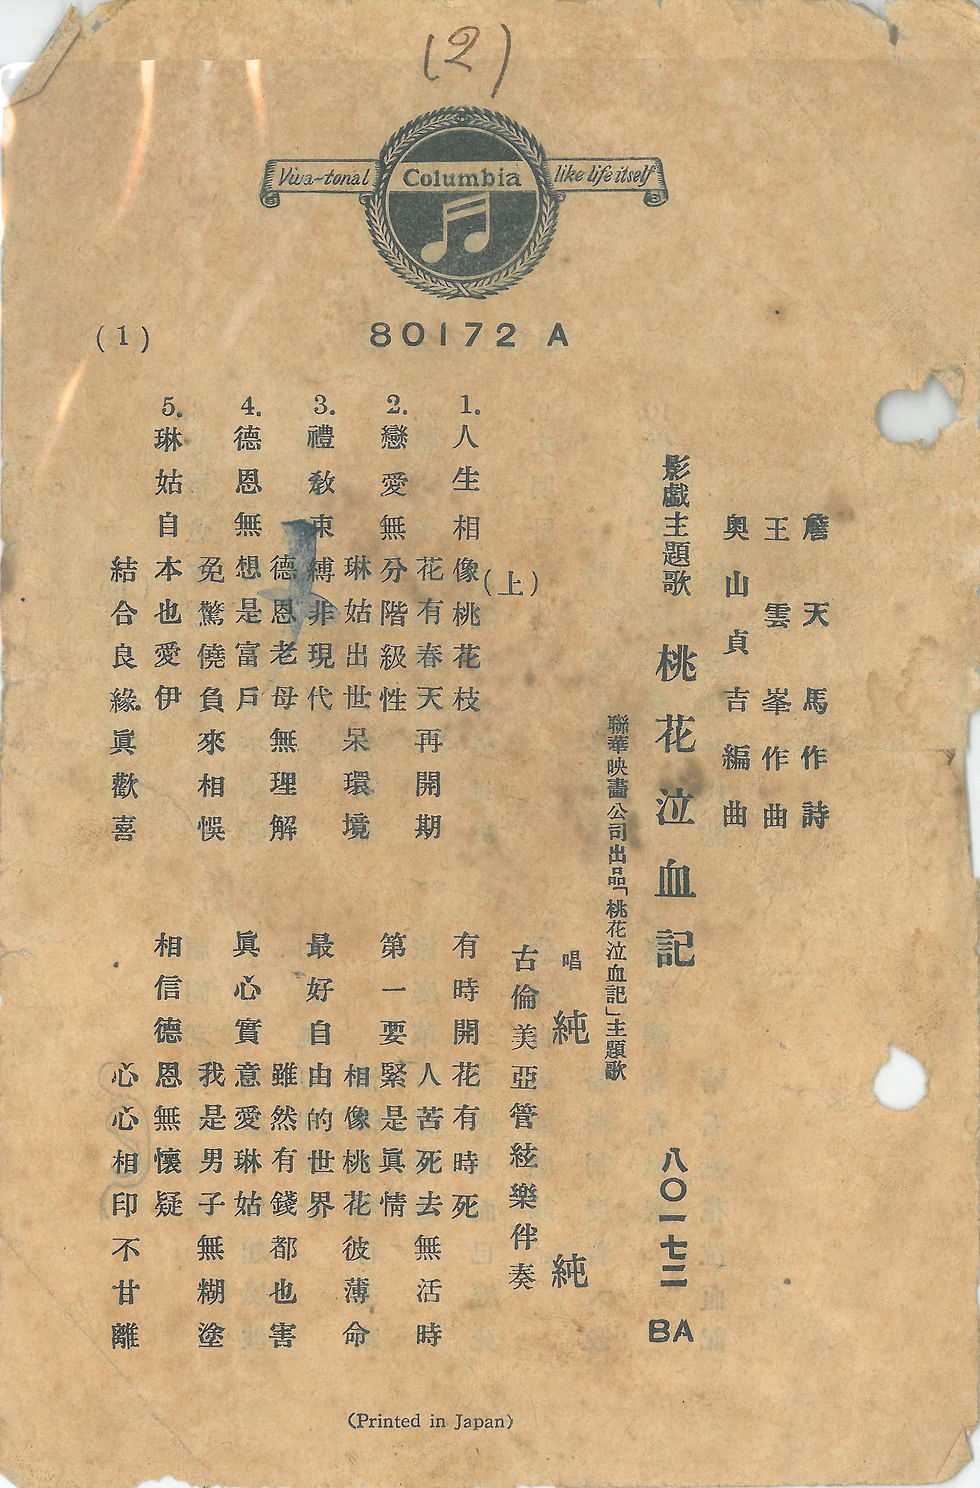 (2)
Viva-tonal Columbia like life itself
(1)
80172 A
詹天馬作詩
王雲峯作曲
奧山貞吉編曲
影戲主題歌 桃花泣血記 八〇一七二 BA
聯華映畫公司出品「桃花泣血記」主題歌
唱 純純
古倫美亞管絃樂伴奏
(上)
1. 人生相像桃花枝 有時開花有時死
花有春天再開期 人苦死去無活時
2. 戀愛無分階級性 第一要緊是眞情
琳姑出世呆環境 相像桃花彼薄命
3. 禮敎束縛非現代 最好自由的世界
德恩老母無理解 雖然有錢都也害
4. 德恩無想是富戶 眞心實意愛琳姑
免驚僥負來相悞 我是男子無糊塗
5. 琳姑自本也愛伊 相信德恩無懷疑
結合良緣眞歡喜 心心相印不甘離
(Printed in Japan)